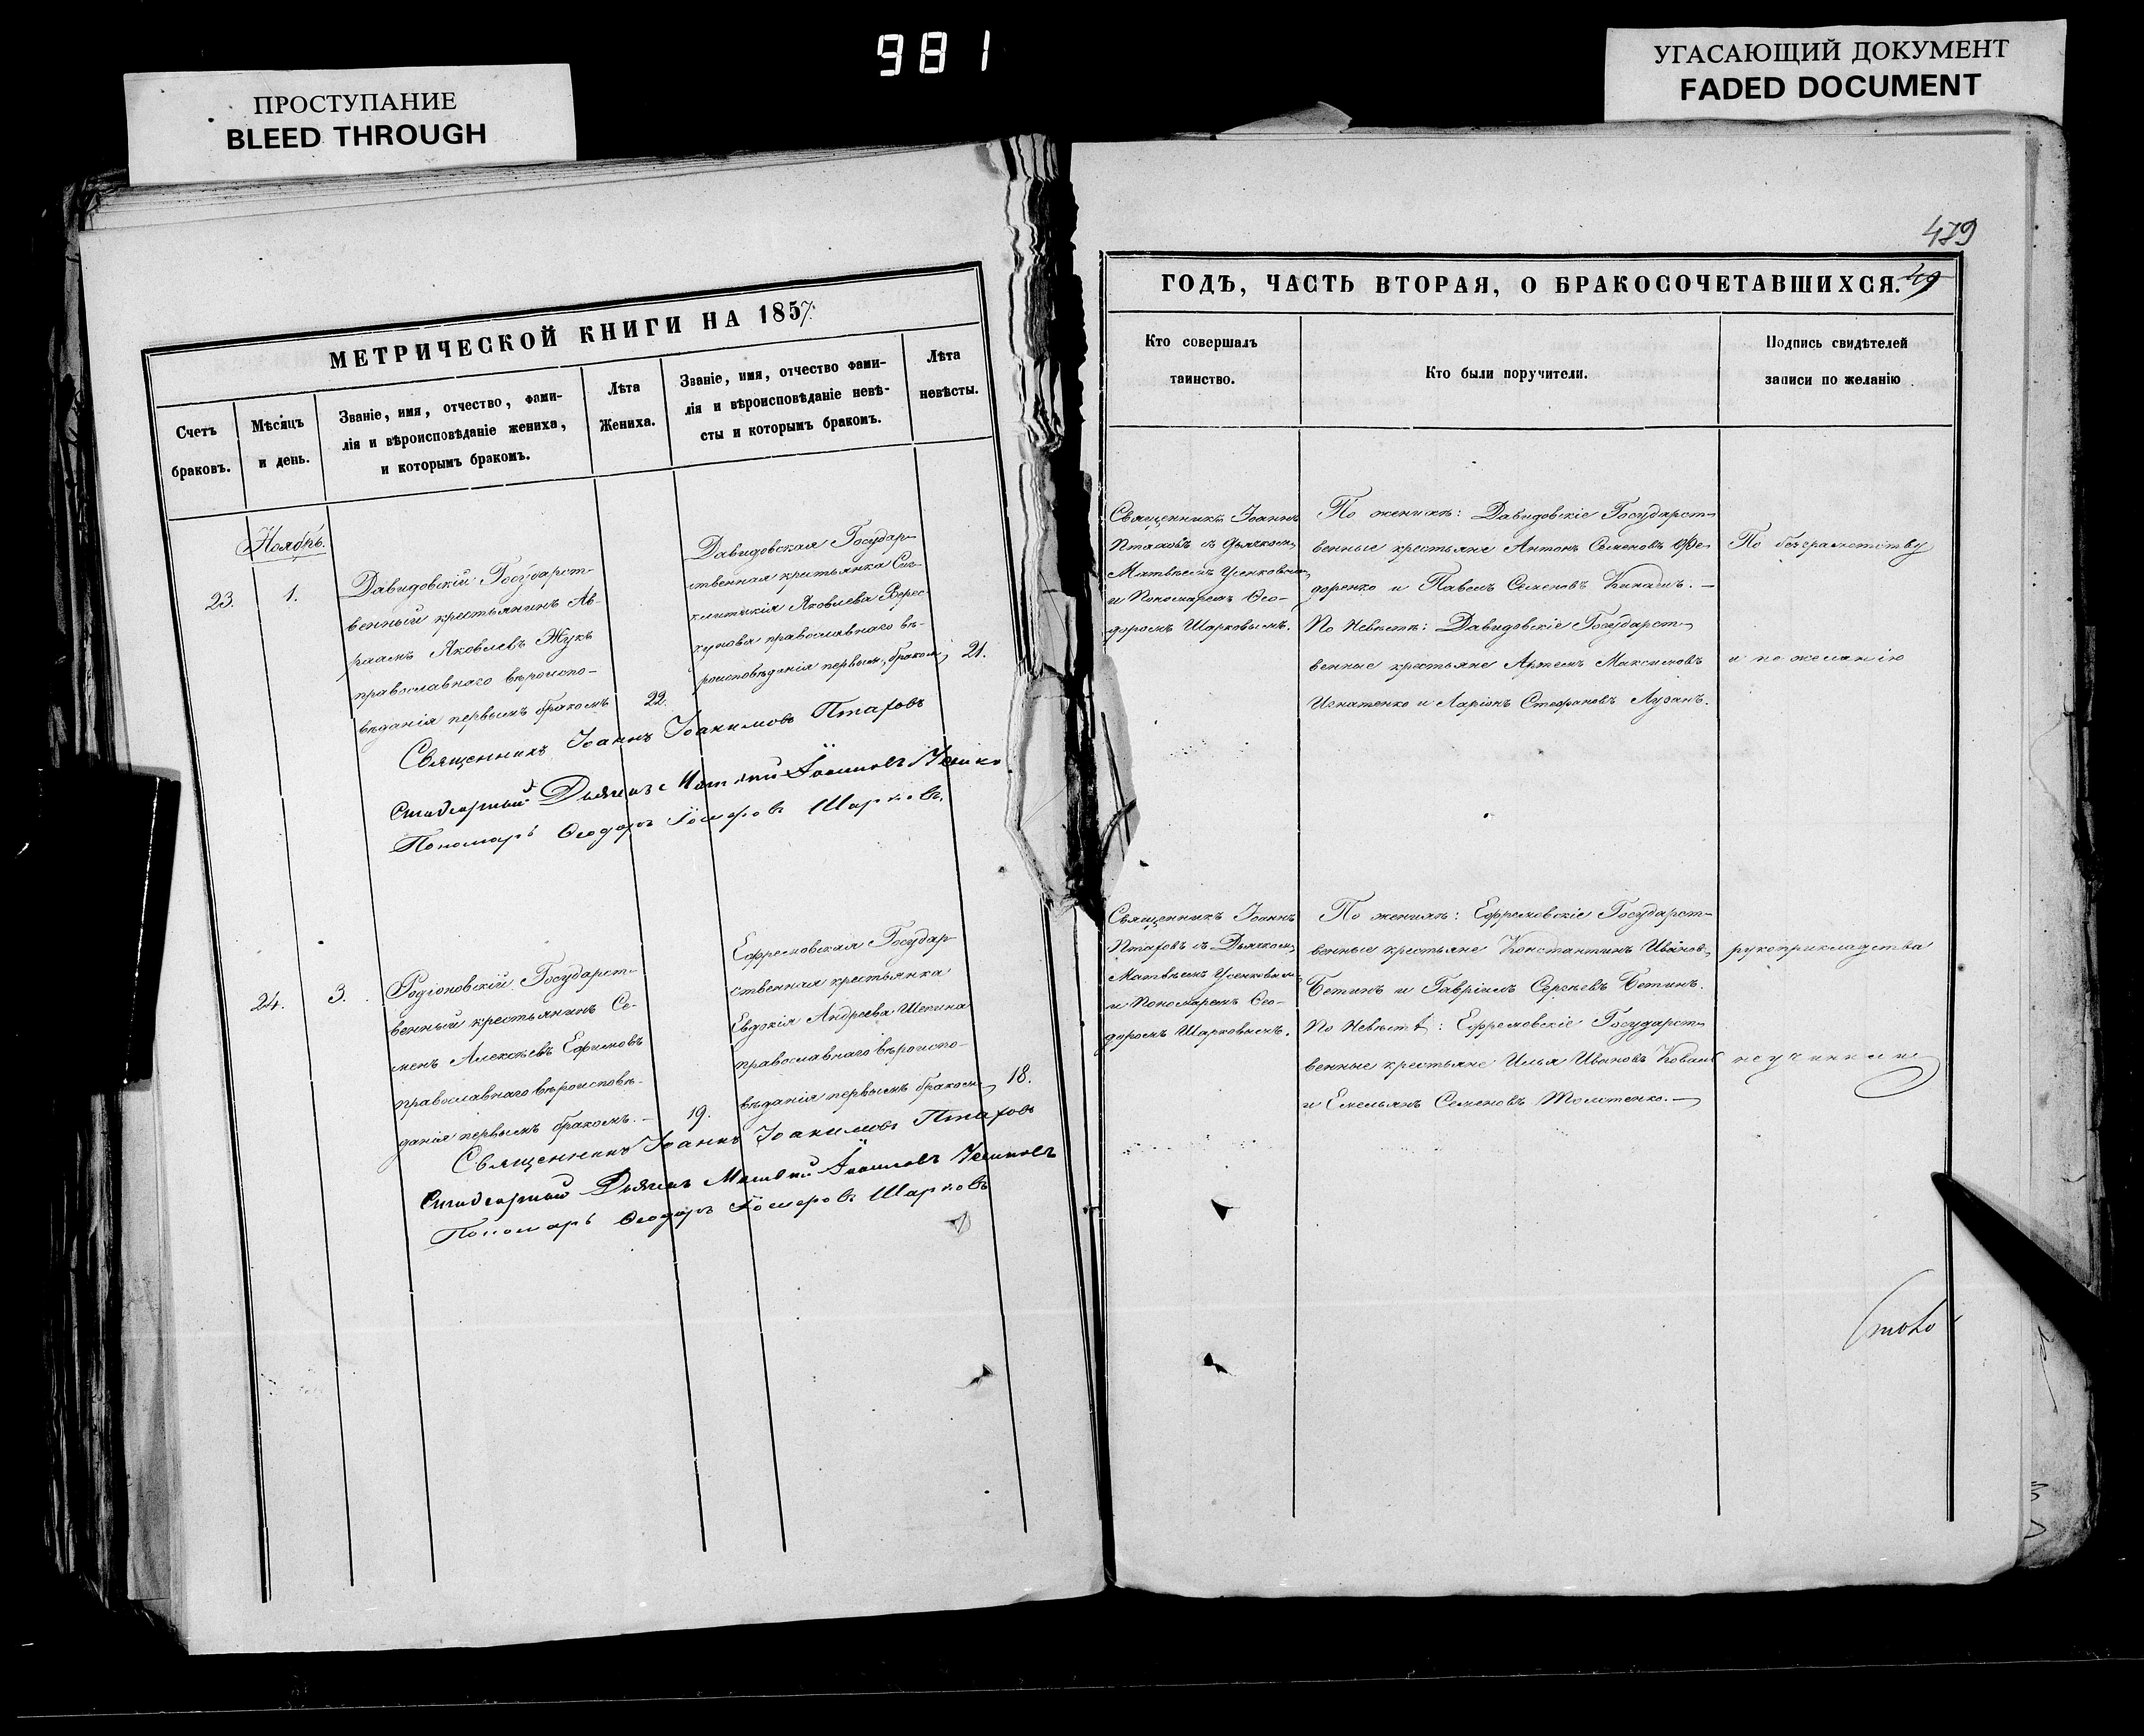 981
ПРОСТУПАНИЕ
BLEED THROUGH
УГАСАЮЩИЙ ДОКУМЕНТ
FADED DOCUMENT
МЕТРИЧЕСКОЙ КНИГИ НА 1857
Счетъ
браковъ.
Мѣсяцъ
и день.
Званіе, имя, отчество, фами-
лія и вѣроисповѣданіе жениха,
и которымъ бракомъ.
Лѣта
Жениха.
Званіе, имя, отчество фами-
лія и вѣроисповѣданіе невѣ-
сты и которымъ бракомъ.
Лѣта
невѣсты.
Ноябрь.
23.
1.
Давидовскій Государст-
венный крестьянинъ Ав-
раамъ Яковлевъ Жукъ
православнаго вѣроиспо-
вѣданія первымъ бракомъ
22.
Давидовская Государ-
ственная крестьянка
Яковлева
православнаго вѣ-
роисповѣданія первымъ бракомъ
21.
Священникъ Іоаннъ Іоакимовъ Птаховъ
Дьячекъ Матѳий
Пономарь Ѳеодоръ Шарковъ
24.
3.
Родіоновскій Государст-
венный крестьянинъ Се-
менъ Алексѣевъ Ефимовъ
православнаго вѣроисповѣ-
данія первымъ бракомъ.
19.
Ефремовская Государ-
ственная крестьянка
Евдокія Андреева Шепина
православнаго вѣроиспо-
вѣданія первымъ бракомъ
18.
Священникъ Іоаннъ Іоакимовъ Птаховъ
Дьячекъ Матѳий
Пономарь Ѳеодоръ Шарковъ
479
49
ГОДЪ, ЧАСТЬ ВТОРАЯ, О БРАКОСОЧЕТАВШИХСЯ.
Кто совершалъ
таинство.
Кто были поручители.
Подпись свидѣтелей
записи по желанію
Священникъ Іоаннъ
Птаховъ съ Дьячкомъ
Матвѣемъ Усенковымъ
и Пономаремъ Ѳео-
доромъ Шарковымъ.
По женихѣ: Давидовскіе Государст-
венные крестьяне Антонъ Семеновъ Фе-
доренко и Павелъ Семеновъ Кинашъ.
По Невѣстѣ: Давидовскіе Государст-
венные крестьяне Артемъ Максимовъ
Игнатенко и Ларіонъ Стефановъ Лузанъ.
По безграмотству
и по желанію
Священникъ Іоаннъ
Птаховъ съ Дьячкомъ
Матвѣемъ Усенковымъ
и Пономаремъ Ѳео-
доромъ Шарковымъ.
По женихѣ: Ефремовскіе Государст-
венные крестьяне Константинъ Ивановъ
Бетинъ и Гавріилъ Сергѣевъ Бетинъ.
По Невѣстѣ: Ефремовскіе Государст-
венные крестьяне Илья Ивановъ
и Емельянъ Семеновъ Толстенко.
рукоприкладства
неучинили